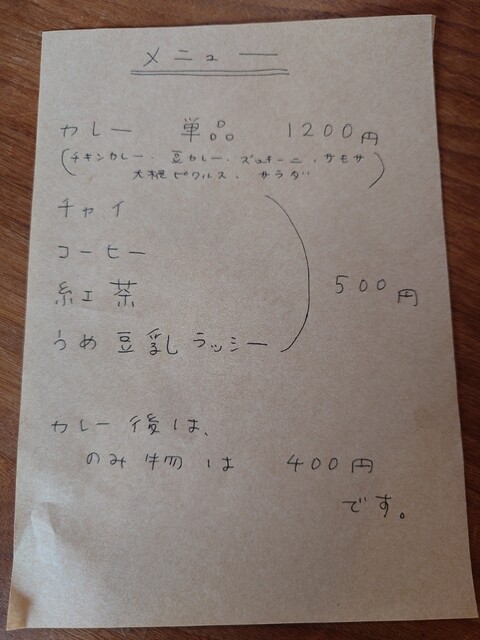 メニュー
カレー 単品 1200円
(チキンカレー、豆カレー、ズッキーニ、サモサ
大根ピクルス、サラダ)
チャイ
コーヒー
紅茶
500円
うめ豆乳ラッシー
カレー後は、
のみ物は 400円
です。